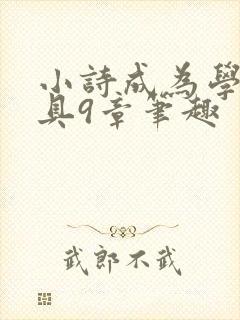 小詩成為學
具9章筆趣
武郎不武